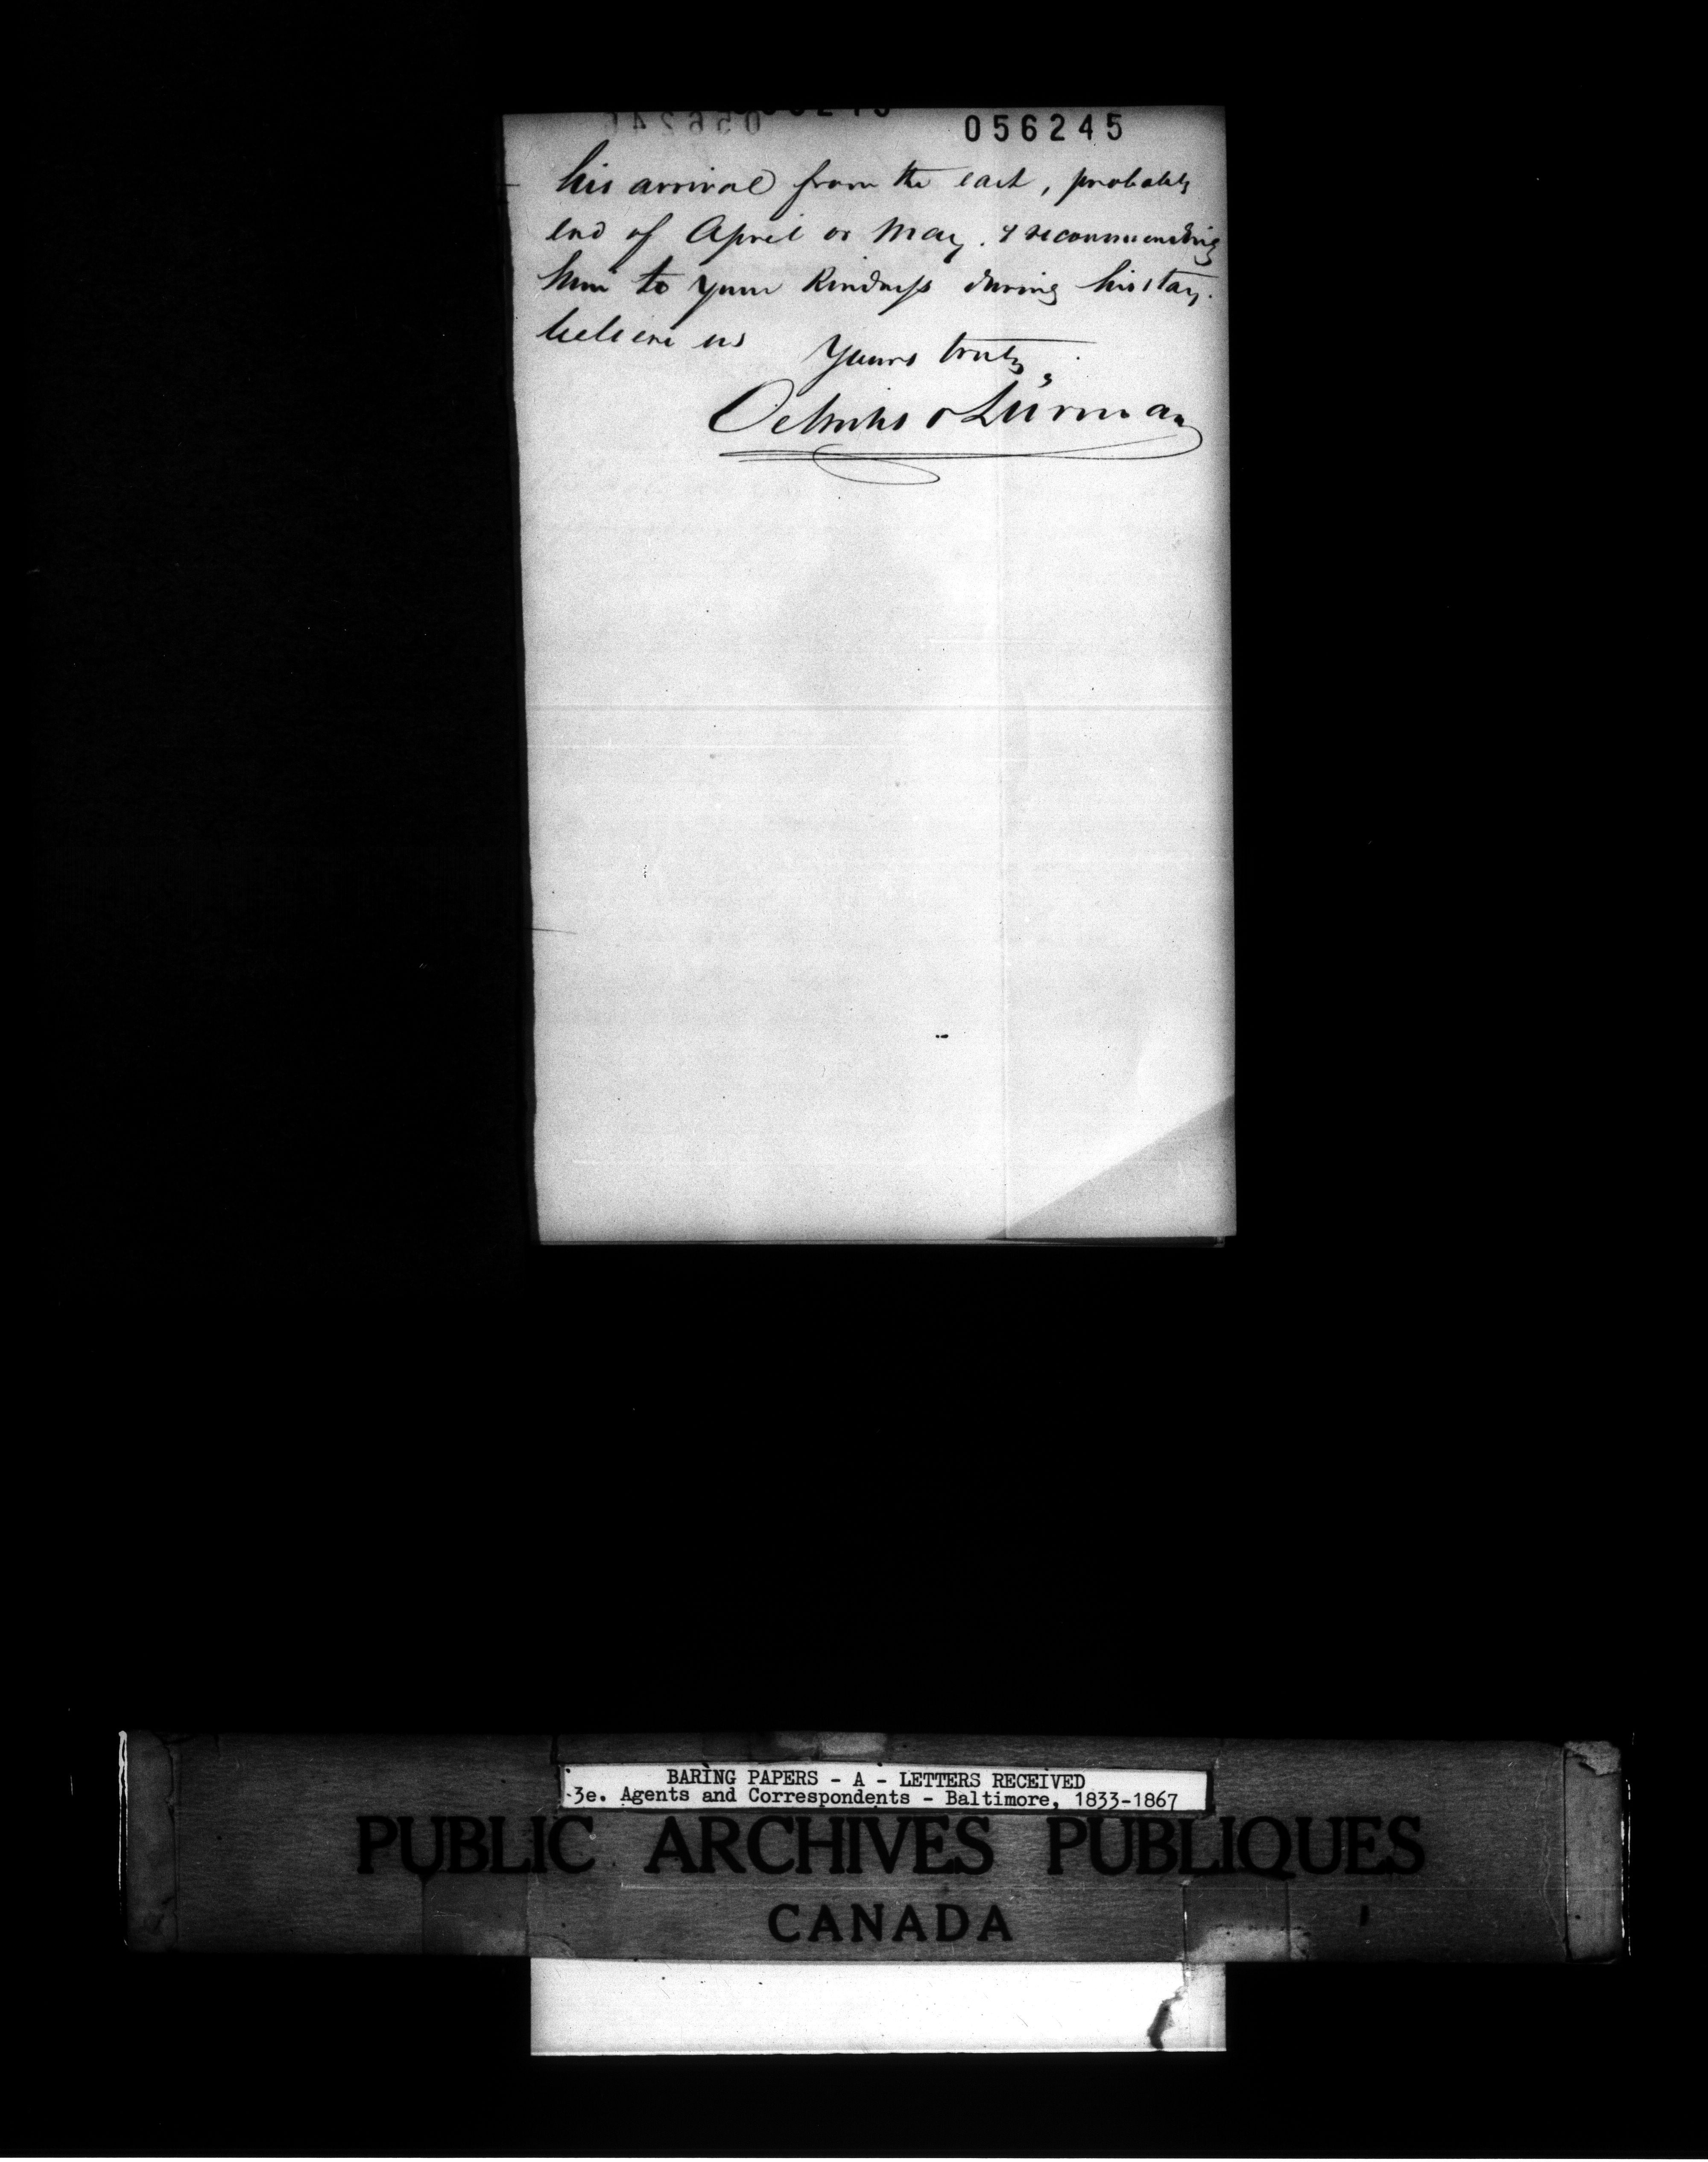 056245
his arrival from the east, probably
end of April or May. & recommending
him to your kindness during his stay.
believe us
Yours truly
Oelrichs & Lürman
BARING PAPERS - A - LETTERS RECEIVED
3e. Agents and Correspondents - Baltimore, 1833-1867
PUBLIC ARCHIVES PUBLIQUES
CANADA